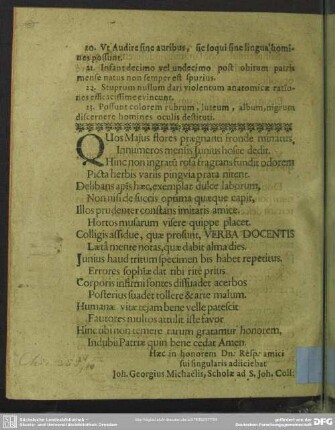 20. Vt Audire sine auribus, sic loqui sine lingua homi-
nes possunt.
21. Infans decimo vel undecimo post obitum patris
mense natus non semper est spurius.
22. Stuprum nullum dari violentum anatomicæ ratio-
nes efficacissime evincunt.
23. Possunt colorem rubrum, luteum, album, nigrum
discernere homines oculis destituti.
QUos Majus flores prægnanti fronde minatus,
Innumeros mensis Junius hosce dedit.
Hinc non ingratũ rosa fragrans fundit odorem
Picta herbis variis pingvia prata nitent.
Delibans apis hæc, exemplar dulce laborum,
Non nisi de succis optima quæque capit,
Illos prudenter constans imitaris amice,
Hortos musarum visere quippe placet.
Colligis assidue, quæ prosunt, VERBA DOCENTIS
Lætâ mente notas, quæ dabit alma dies.
Junius haud tritum specimen bis habet repetitus,
Errores sophiæ dat tibi ritè prius.
Corporis infirmi fontes dissuadet acerbos
Posterius suadet tollere & arte malum.
Humanæ vitæ tejam bene velle patescit
Fautores multos attulit iste favor
Hinc tibi non temere tacum gratamur honorem,
Indubii Patriæ quin bene cedat Amen.
Hæc in honorem Dn. Resp. amici
sui singularis adjiciebat
Joh. Georgius Michaëlis, Scholæ ad S. Joh. Coll.